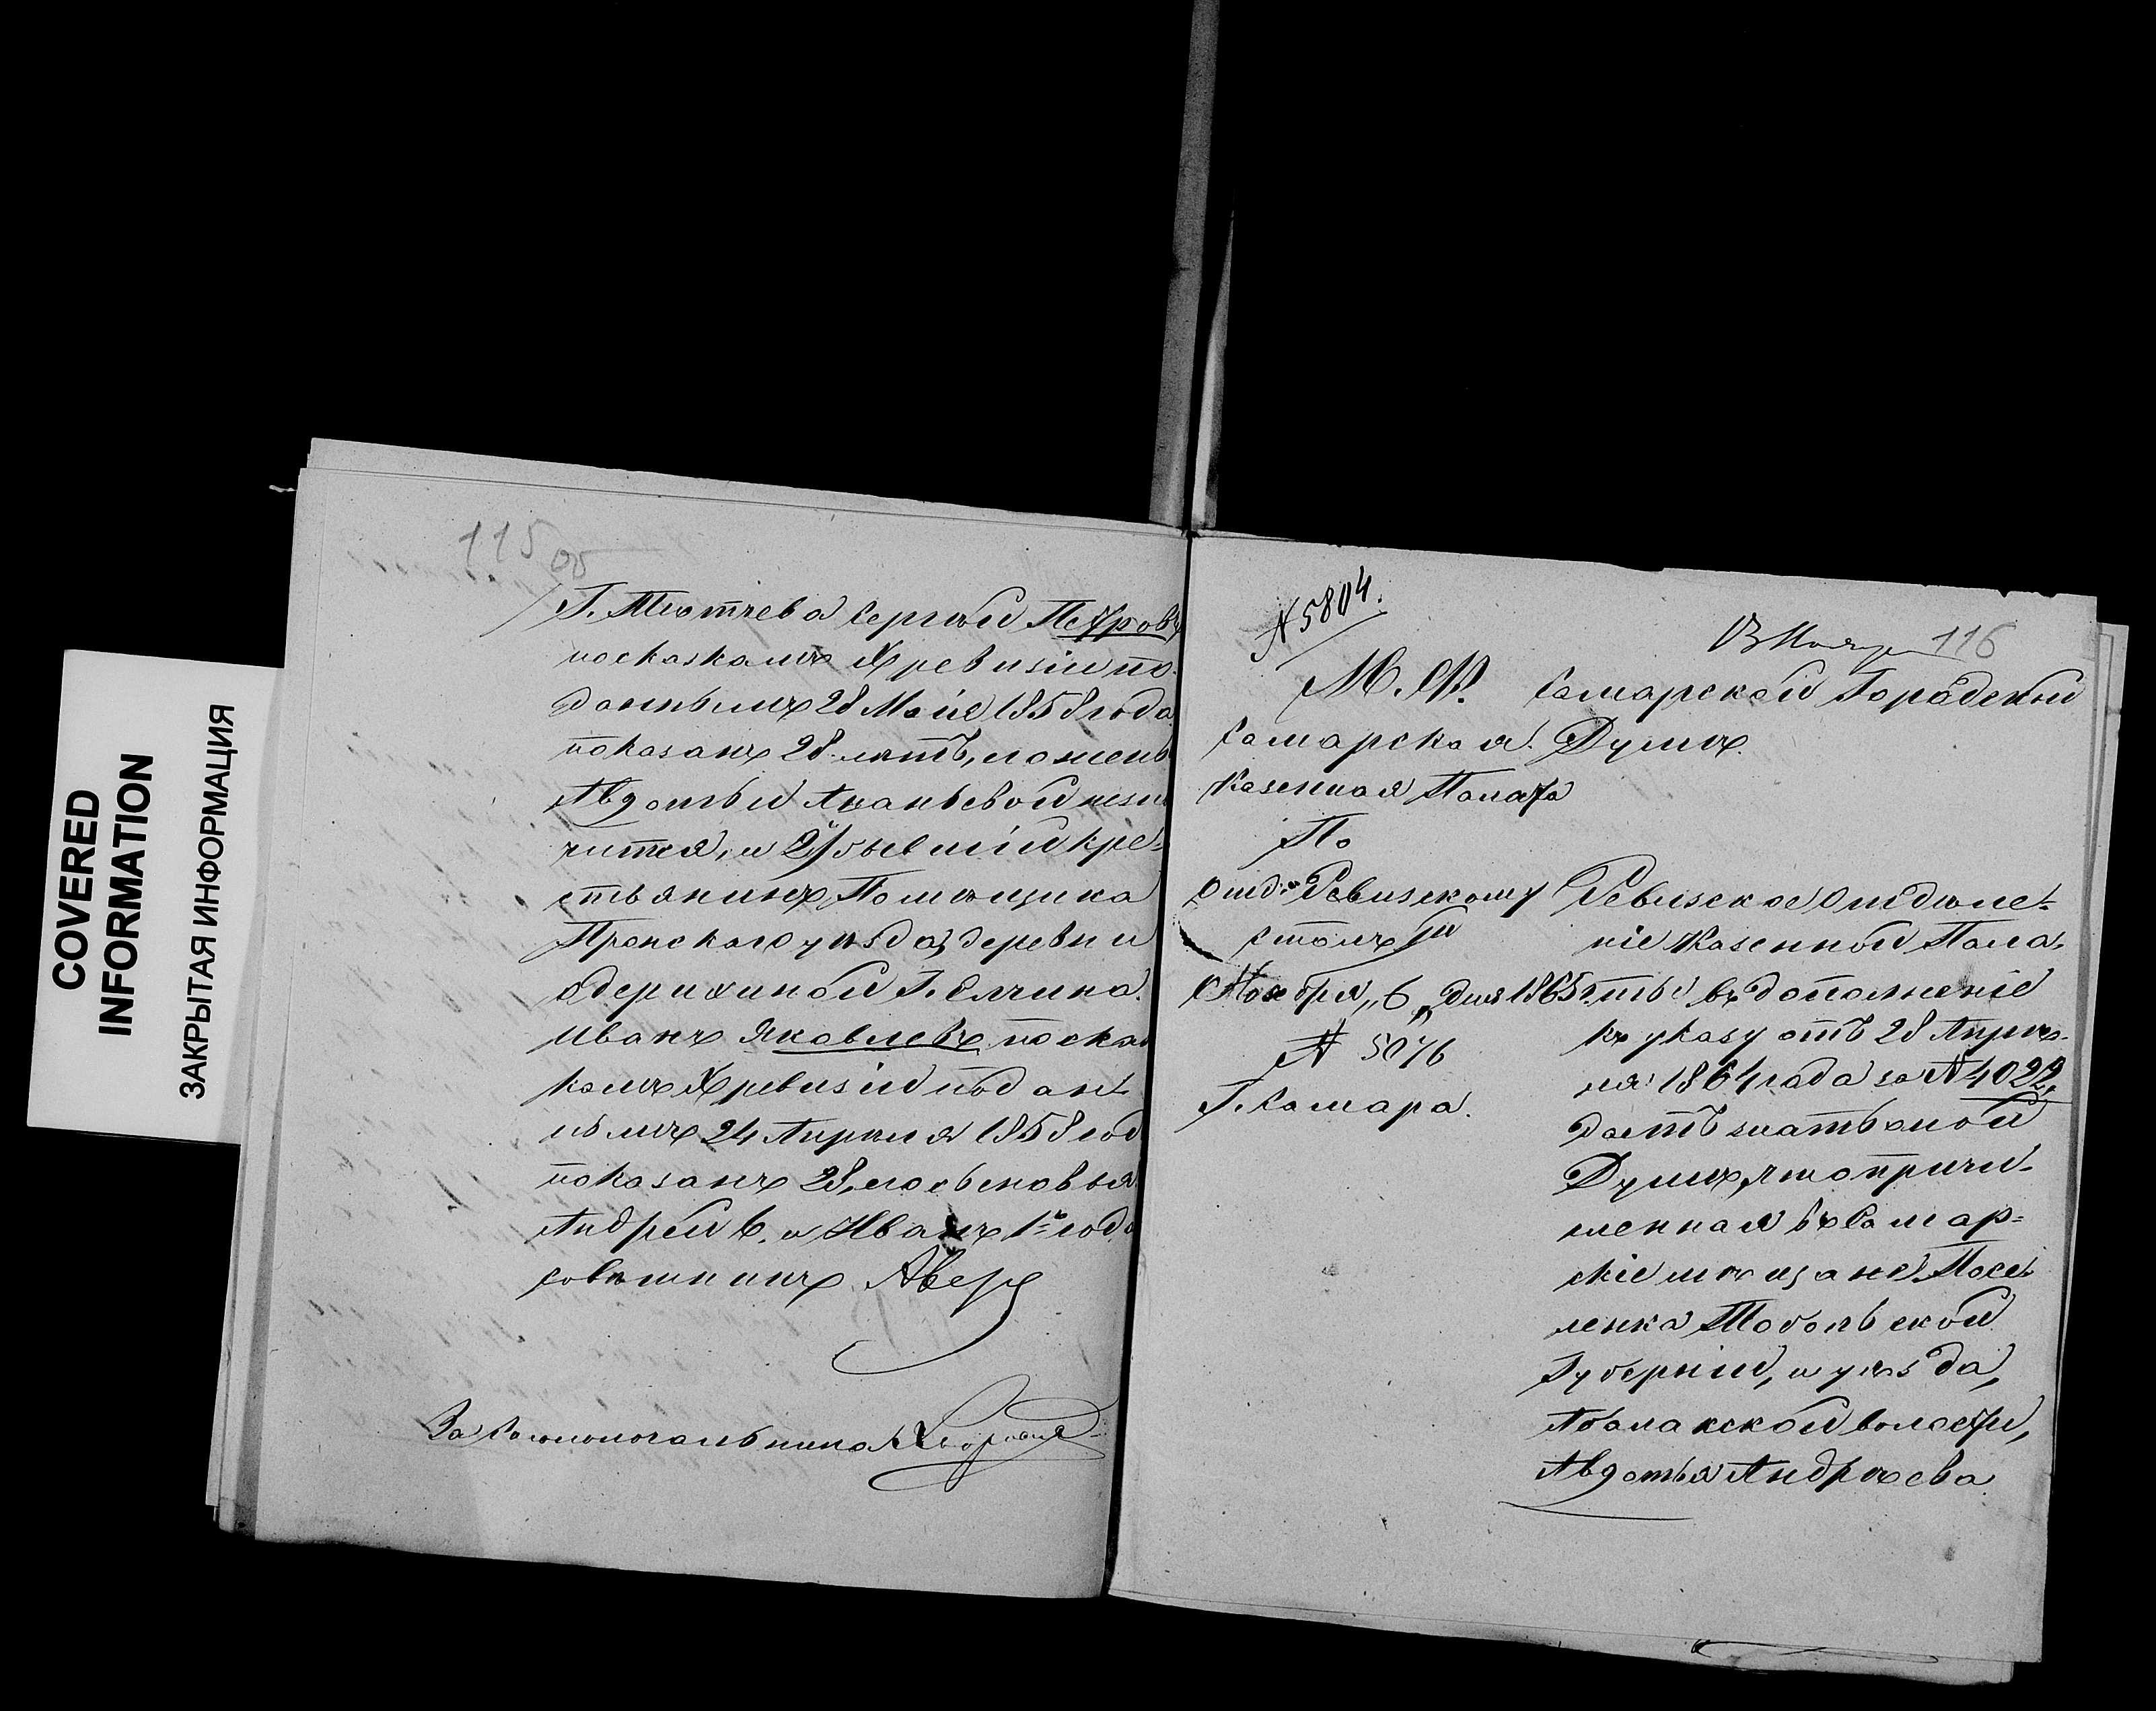 COVERED
INFORMATION
ЗАКРЫТАЯ ИНФОРМАЦИЯ
115 об
Г. Тютчева Сергѣй Петровъ
по сказкамъ X ревизіи по-
даннымъ 28 Маія 1858 года
показанъ 28 лѣтъ, но жены
Авдотьи Ананьевой не зна
чится, и 2/ бывшій кре-
стьянинъ Помѣщика
Пронскаго уѣзда, деревни
Г. Елчина
Иванъ Яковлевъ по ска
камъ X ревизіи подан-
нымъ 24 Апрѣля 1858 год
показанъ 28, его сыновья
Андрей 6. и Иванъ 1го года
Совѣтникъ
За Столоначальника
№ 5804.
13 Ноября 116
М. Ф.
Самарская
Казенная Палата
По
Отд. Ревизскому
столу
Ноября „6„ дня 1865 г.
№ 5076
Г. Самара.
Самарской Городской
Думѣ.
Ревизское Отдѣле-
ніе Казенной Пала-
ты въ дополненіе
къ указу отъ 28 Апрѣ-
ля 1864 года за № 4022,
даетъ знать оной
Думѣ, что причи-
сленная въ Самар-
скіе мѣщане Посе-
ленка Тобольской
Губерніи, и уѣзда,
Абалакской волости,
Авдотья Андрѣева